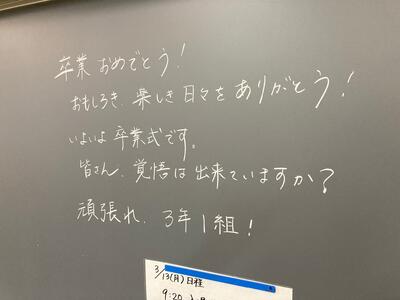 卒業おめでとう!
おもしろき、楽しき日々をありがとう!
いよいよ卒業式です。
皆さん、覚悟は出来ていますか?
頑張れ、3年1組!
3/13(月)日程
9:20